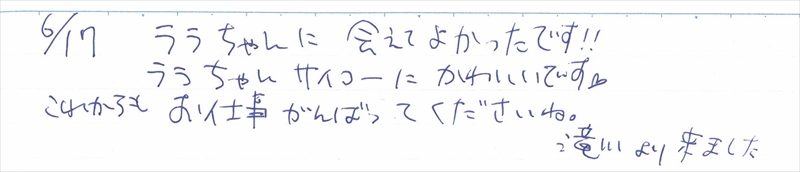 6/17 ララちゃんに 会えてよかったです!!
ララちゃん サイコーに かわいいです♪
これからも お仕事 がんばってくださいね。
滝川より 来ました